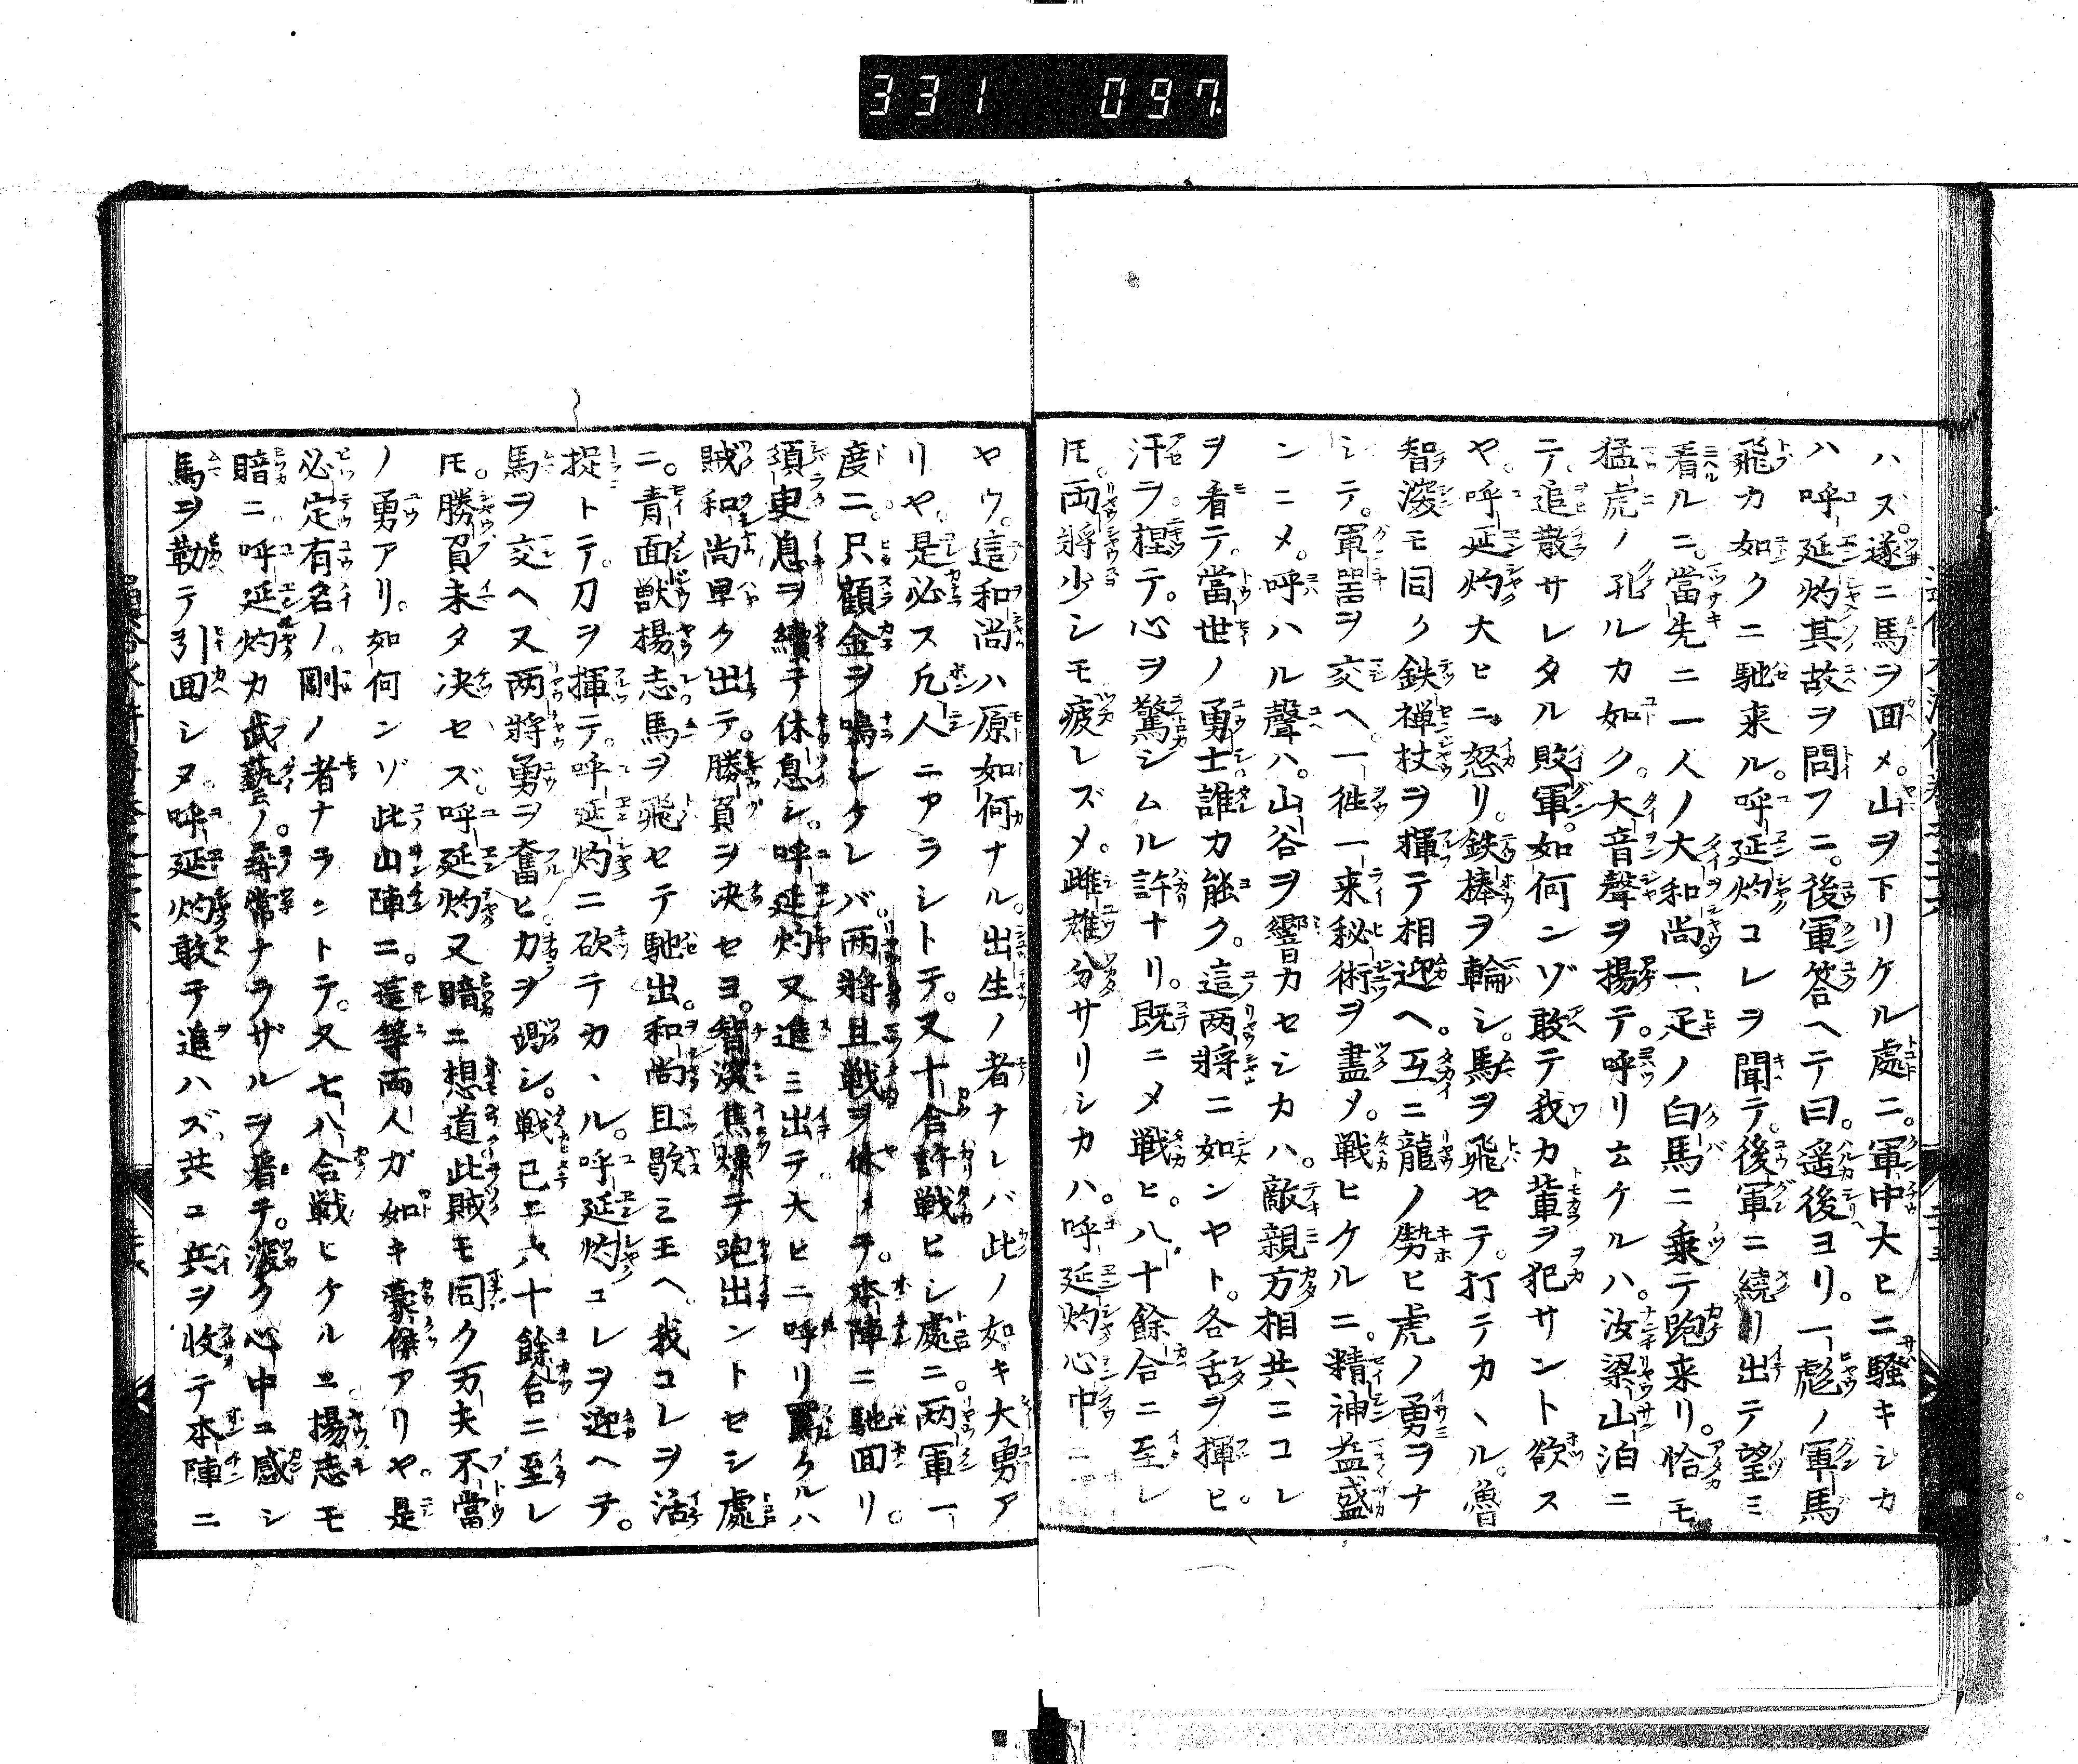 331 097
ハズ。遂ニ馬ヲ回メ。山ヲ下リケル處ニ。軍中大ヒニ騒キシカ
ハ呼延灼其故ヲ問フニ。後軍答ヘテ曰。遥後ヨリ。一彪ノ軍馬
飛カ如クニ馳来ル。呼延灼コレヲ聞テ。後軍ニ繞リ出テ望ミ
看ルニ。當先ニ一人ノ大和尚。一疋ノ白馬ニ乗テ跑来リ。恰モ
猛虎ノ孔ルカ如ク。大音聲ヲ揚テ。呼リ云ケルハ。汝梁山泊ニ
テ。追散サレタル敗軍。如何ンゾ敢テ我カ輩ヲ犯サント欲ス
ヤ。呼延灼大ヒニ怒リ。鉄棒ヲ輪シ。馬ヲ飛セテ。打テカヽル。魯
智深モ同ク鉄禅杖ヲ揮テ相迎ヘ。互ニ龍ノ勢ヒ虎ノ勇ヲナ
シテ。軍器ヲ交ヘ。一徃一来秘術ヲ盡メ。戦ヒケルニ。精神益盛
ンニメ。呼ハル聲ハ。山谷ヲ響カセシカハ。敵親方相共ニコレ
ヲ看テ。當世ノ勇士誰カ能ク。這両将ニ如ンヤト。各舌ヲ揮ヒ。
汗ヲ。握テ。心ヲ驚シムル許ナリ。既ニメ戦ヒ。八十餘合ニ至レ
𪜈。両將少シモ疲レズメ。雌雄分サリシカハ。呼延灼心中ニ
ヤウ。這和尚ハ原如何ナル。出生ノ者ナレバ此ノ如キ大勇ア
リヤ。是必ス凡人ニアラシトテ。又十合許戦ヒシ處ニ。両軍一
度ニ。只顧金ヲ鳴シケレバ。両將且戦ヲ休メテ。本陣ニ馳回リ。
須臾息ヲ續テ休息シ。呼延灼又進ミ出テ大ヒニ呼リ罵ケルハ
賊和尚早ク出テ。勝負ヲ决セヨ。智深焦燥テ跑出ントセシ處
ニ。青面獣楊志馬ヲ飛セテ馳出。和尚且歇ミ玉ヘ。我コレヲ活
捉トテ。刀ヲ揮テ。呼延灼ニ砍テカヽル。呼延灼コレヲ迎ヘテ。
馬ヲ交ヘ又両將勇ヲ奮ヒ。力ヲ竭シ。戦已ニ六十餘合ニ至レ
𪜈。勝負未タ决セズ。呼延灼又暗ニ想道此賊モ同ク万夫不當
ノ勇アリ。如何ンゾ此山陣ニ。這等両人ガ如キ豪傑アリヤ。是
必定有名ノ。剛ノ者ナラントテ。又七八合戦ヒケルニ。楊志モ
暗ニ。呼延灼カ武藝ノ。尋常ナラザルヲ看テ。深ク心中ニ感シ
馬ヲ勒テ引回シヌ。呼延灼敢テ追ハズ、共ニ兵ヲ收テ本陣ニ